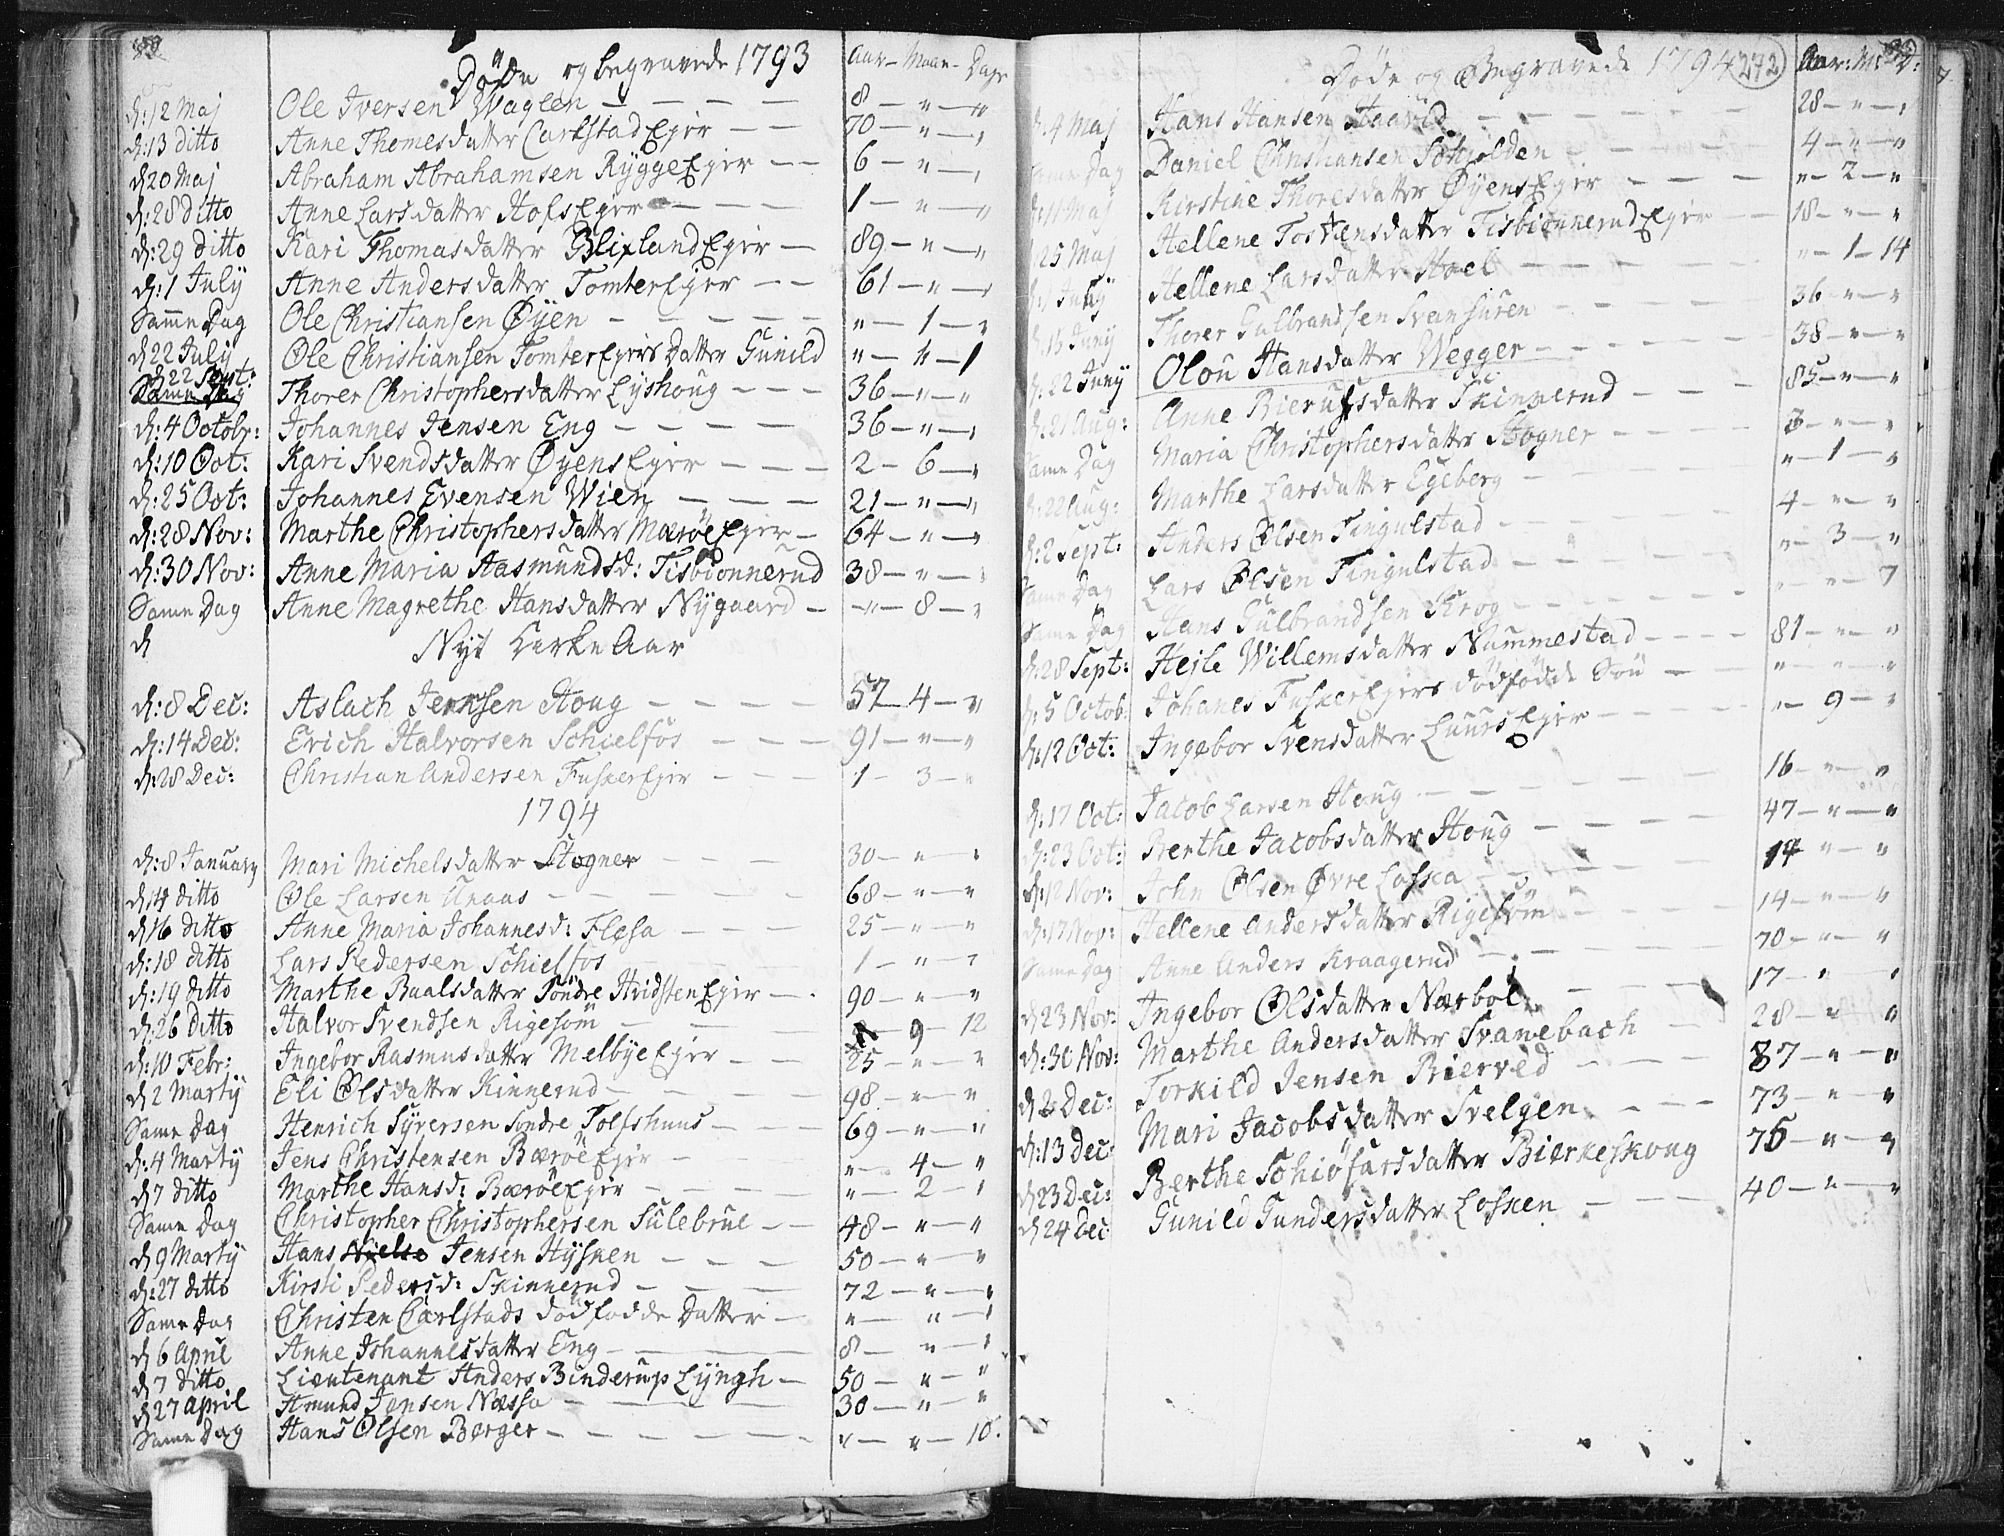 Døde og begravede 1793 Aar - Maan - Dage
d: 12 Maj Ole Iversen Waglen 8 - " - "
d: 13 ditto Anne Thomesdatter Carlstad Ejer 70 - " - "
d 20 Maj Abraham Abrahamsen Rygge Ejer 6 - " - "
d: 28 ditto Anne Larsdatter Hofs Ejer 1 - " - "
d: 29 ditto Kari Thomasdatter Blixland Ejer 89 - " - "
d: 1 July Anne Andersdatter Tomter Ejer 61 - " - "
Samme Dag Ole Christiansen Øyen " - 1 - "
d 22 July Ole Christiansen Tomter Ejers Datter Gunild " - " - 1
d 22 Sept: Thorer Christophersdatter Lyshoug 36 - " - "
d: 4 Octobr: Johannes Jensen Eng 36 - " - "
d: 10 Oct: Kari Svendsdatter Øyens Ejer 2 - 6 - "
d: 25 Oct: Johannes Evensen Wien 21 - " - "
d: 28 Nov: Marthe Christophersdatter Mærøe Ejer 64 - " - "
d: 30 Nov: Anne Maria Aasmundsd: Tisbionnerud 38 - " - "
Same Dag Anne Magrethe Hansdatter Nygaard " - 8 - "
d Nyt Kerke Aar
d: 8 Dec: Aslach Jensen Houg 57 - 4 - "
d: 14 Dec: Erich Halvorsen Schielfos 91 - " - "
d: 28 Dec: Christian Andersen Fusker Ejer 1 - 3 - "
1794
d: 8 January Mari Michelsdatter Stogner 30 - " - "
d 14 ditto Ole Larsen Unaas 68 - " - "
d 16 ditto Anne Maria Johannesd: Flesa 25 - " - "
d: 18 ditto Lars Pedersen Schielfos 1 - " - "
d: 19 ditto Marthe Paalsdatter Søndre Hvidsten Ejer 90 - " - "
d: 26 ditto Halvor Svendsen Rigesøm 9 - 12
d: 10 Febr: Ingebor Rasmusdatter Melbye Ejer 25 - " - "
d 2 Marty Eli Olsdatter Kinnerud 98 - " - "
Same Dag Henrich Syversen Søndre Tolfshuus 69 - " - "
d: 4 Marty Jens Christensen Bærøe Ejer " - 4 - "
d 7 ditto Marthe Hansd: Bærøe Ejer " - 2 - "
Same Dag Christopher Christophersen Sulebrue 48 - " - "
d 9 Marty Hans Jensen Hysken 50 - " - "
d: 27 ditto Kirsti Pedersd: Skinnerud 72 - " - "
Same Dag Christen Carlstads dødfødde Datter " - " - "
d 6 April Anne Johannesdatter Eng 8 - " - "
d 7 ditto Lieutenant Anders Binderup Lyngh 50 - " - "
d 27 April Amund Jensen Næssa 30 - " - "
Same Dag Hans Olsen Berger " - " - 10.
Døde og Begravede 1794 272 Aar: M: D:
d. 4 Maj Hans Hansen Haavid 28 - " - "
Same Dag Daniel Christiansen Schjolden 4 - " - "
d: 11 Maj Kirstine Thoresdatter Øyens Ejer " - 2 - "
25 Maj Hellene Tostensdatter Tisbionnerud Ejer 18 - " - "
d: 1 Juny Hellene Larsdatter Hoel " - 1 - 14
d. 15 Juny Thorer Gulbrandsen Svensuren 36 - " - "
d. 22 Juny Olou Hansdatter Wegger 38 - " - "
d: 21 Aug: Anne Bierufsdatter Skinnerud 85 - " - "
Same Dag Maria Christophersdatter Stogner 3 - " - "
d. 22 Aug: Marthe Larsdatter Egeberg " - 1 - "
d: 2 Sept: Anders Olsen Tingulstad 4 - " - "
Same Dag Lars Olsen Tingulstad " - 3 - "
Same Dag Hans Gulbrandsen Krog " - " - 7
d: 28 Sept: Heile Willemsdatter Nummestad 81 - " - "
d: 5 Octob: Johanes Fusker Ejers dødfødde Søn " - " - "
d: 12 Oct: Ingebor Svensdatter Luurs Ejer " - 9 - "
d: 17 Oct: Jacob Larsen Houg 16 - " - "
d: 23 Oct: Berthe Jacobsdatter Houg 47 - " - "
d: 12 Nov: John Olsen Øvre Losken 14 - " - "
d: 17 Nov: Hellene Andersdatter Rigesøm 14 - " - "
Same Dag Anne Anders Kraagerud 70 - " - "
d 23 Nov: Ingebor Olsdatter Nærbøl 17 - " - "
d: 30 Nov: Marthe Andersdatter Svanebach 28 - " - "
d 2 Dec: Torkild Jensen Bierved 87 - " - "
d: 13 Dec: Mari Jacobsdatter Svelgen 73 - " - "
d 23 Dec: Berthe Schiøfarsdatter Biørkeskoug 75 - " - "
d 24 Dec Gunild Gundersdatter Losken 40 - " - "